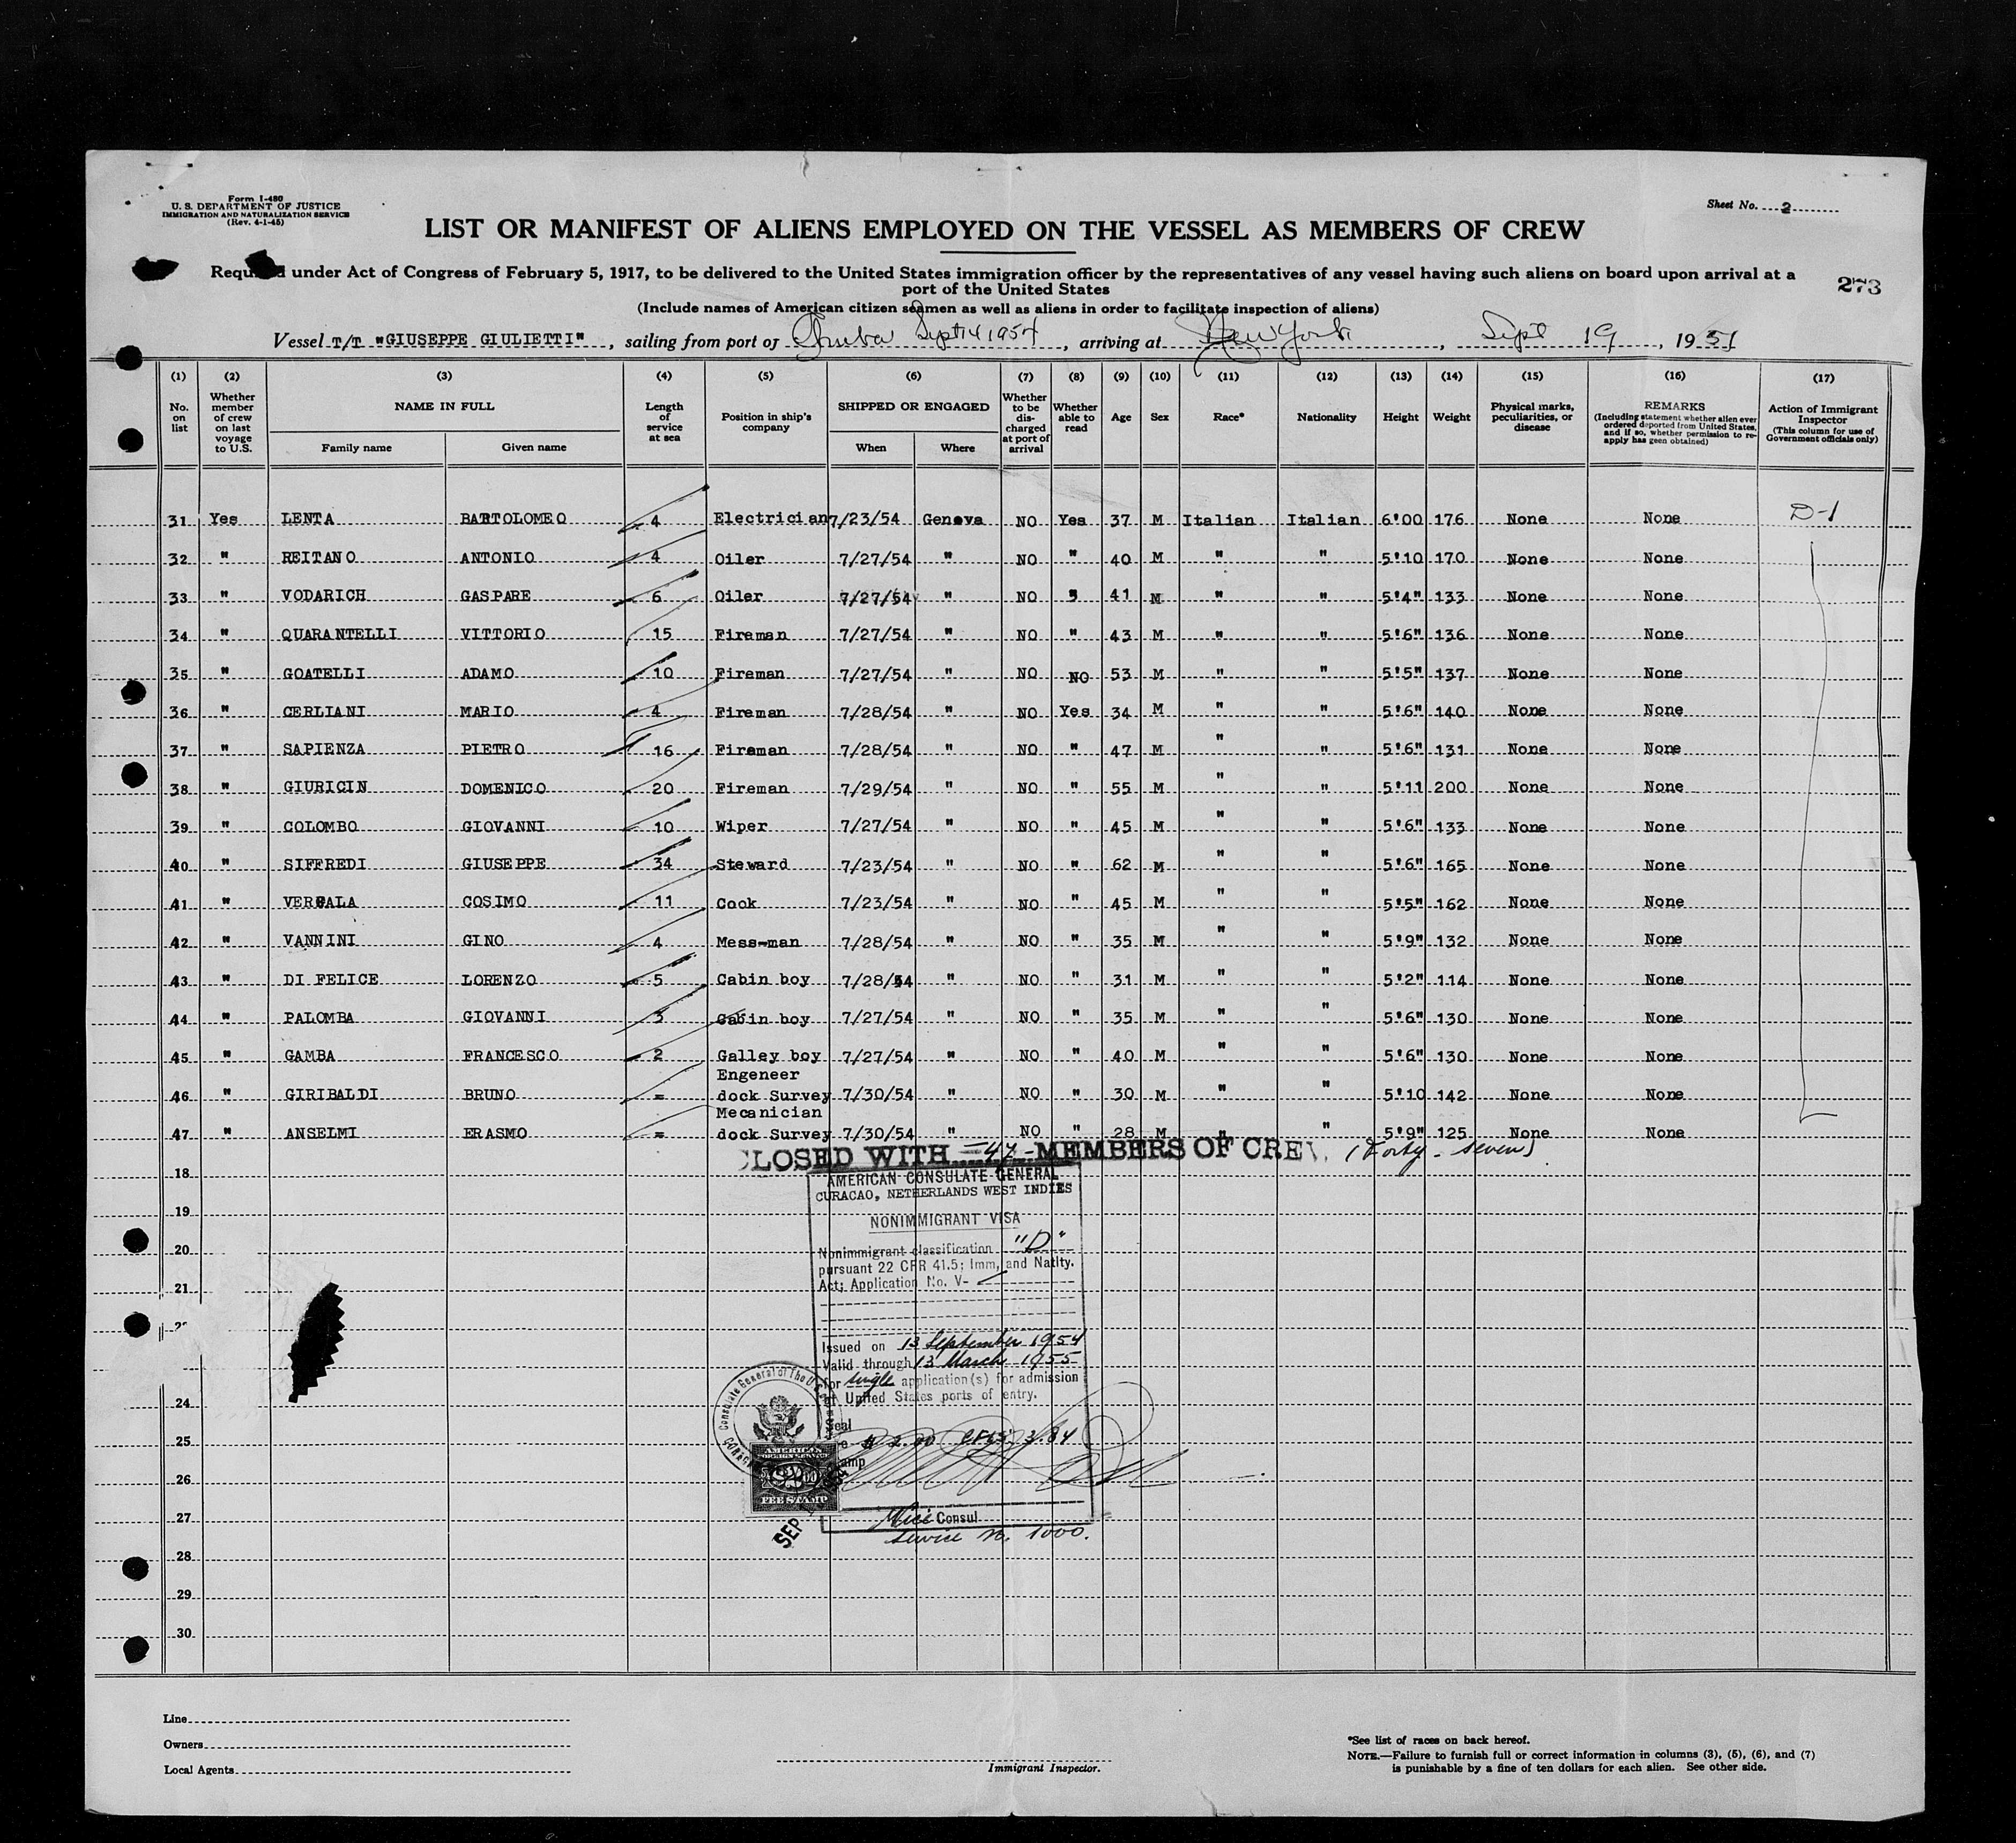 Form I-480
U. S. DEPARTMENT OF JUSTICE
IMMIGRATION AND NATURALIZATION SERVICE
(Rev. 4-1-45)
Sheet No. 2
LIST OR MANIFEST OF ALIENS EMPLOYED ON THE VESSEL AS MEMBERS OF CREW
under Act of Congress of February 5, 1917, to be delivered to the United States immigration officer by the representatives of any vessel having such aliens on board upon arrival at a
port of the United States
273
(Include names of American citizen seamen as well as aliens in order to facilitate inspection of aliens)
Vessel T/T "GIUSEPPE GIULIETTI", sailing from port of Sept 14 1954, arriving at New York, Sept 19, 19
(1) (2) (3) (4) (5) (6) (7) (8) (9) (10) (11) (12) (13) (14) (15) (16) (17)
No. on list
Whether member of crew on last voyage to U.S.
NAME IN FULL
Family name
Given name
Length of service at sea
Position in ship's company
SHIPPED OR ENGAGED
When
Where
Whether to be discharged at port of arrival
Whether able to read
Age
Sex
Race*
Nationality
Height
Weight
Physical marks, peculiarities, or disease
REMARKS
(Including statement whether alien ever ordered deported from United States, and if so, whether permission to re-apply has geen obtained)
Action of Immigrant Inspector
(This column for use of Government officials only)
31 Yes LENTA BARTOLOMEO 4 Electrician 7/23/54 Genova NO Yes 37 M Italian Italian 6'00 176 None None D-1
32 " REITANO ANTONIO 4 Oiler 7/27/54 " NO " 40 M " " 5'10 170 None None
33 " VODARICH GASPARE 6 Oiler 7/27/54 " NO " 41 M " " 5'4" 133 None None
34 " QUARANTELLI VITTORIO 15 Fireman 7/27/54 " NO " 43 M " " 5'6" 136 None None
35 " GOATELLI ADAMO 10 Fireman 7/27/54 " NO NO 53 M " " 5'5" 137 None None
36 " CERLIANI MARIO 4 Fireman 7/28/54 " NO Yes 34 M " " 5'6" 140 None None
37 " SAPIENZA PIETRO 16 Fireman 7/28/54 " NO " 47 M " " 5'6" 131 None None
38 " GIURICIN DOMENICO 20 Fireman 7/29/54 " NO " 55 M " " 5'11 200 None None
39 " COLOMBO GIOVANNI 10 Wiper 7/27/54 " NO " 45 M " " 5'6" 133 None None
40 " SIFFREDI GIUSEPPE 34 Steward 7/23/54 " NO " 62 M " " 5'6" 165 None None
41 " COSIMO 11 Cook 7/23/54 " NO " 45 M " " 5'5" 162 None None
42 " VANNINI GINO 4 Mess-man 7/28/54 " NO " 35 M " " 5'9" 132 None None
43 " DI FELICE LORENZO 5 Cabin boy 7/28/54 " NO " 31 M " " 5'2" 114 None None
44 " PALOMBA GIOVANNI 3 Cabin boy 7/27/54 " NO " 35 M " " 5'6" 130 None None
45 " GAMBA FRANCESCO 2 Galley boy 7/27/54 " NO " 40 M " " 5'6" 130 None None
Engeneer
46 " GIRIBALDI BRUNO = dock Survey 7/30/54 " NO " 30 M " " 5'10 142 None None
Mecanician
47 " ANSELMI ERASMO = dock Survey 7/30/54 " NO " 28 M " " 5'9" 125 None None
CLOSED WITH -47- MEMBERS OF CREW. (Forty-seven)
18
AMERICAN CONSULATE GENERAL
CURACAO, NETHERLANDS WEST INDIES
19
NONIMMIGRANT VISA
20
Nonimmigrant classification "D"
pursuant 22 CFR 41.5; Imm. and Natlty.
21
Act; Application No. V-
Issued on 13 September 1954
Valid through 13 March 1955
for single application(s) for admission
at United States ports of entry.
24
Seal
25
$ 2.00 3.84
26
AMERICAN
FEE STAMP
27
Vice Consul
SEP
Service No. 1000.
28
29
30
Line
Owners
Local Agents
Immigrant Inspector.
*See list of races on back hereof.
NOTE.—Failure to furnish full or correct information in columns (3), (5), (6), and (7)
is punishable by a fine of ten dollars for each alien. See other side.